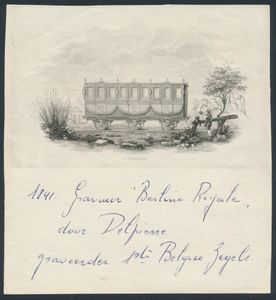 1841. Gravuur "Berline Royale"
door Delpierre
graveerder 1ste Belgise Zegels